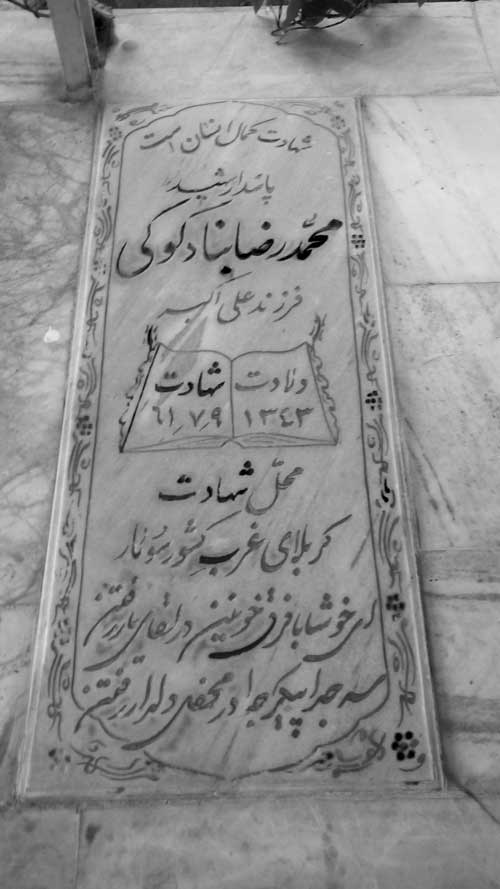 شهادت کمال انسان است
پاسدار شهید
محمدرضا بنادکوکی
فرزند علی اکبر
ولادت شهادت
۱۳٤۳ ٦۱٫۷٫۹
محلّ شهادت
کربلای غرب کشور سومار
ای خوشا با فرق خونین در لقای یار رفتن
سر جدا پیکر جدا در محفل دلدار رفتن